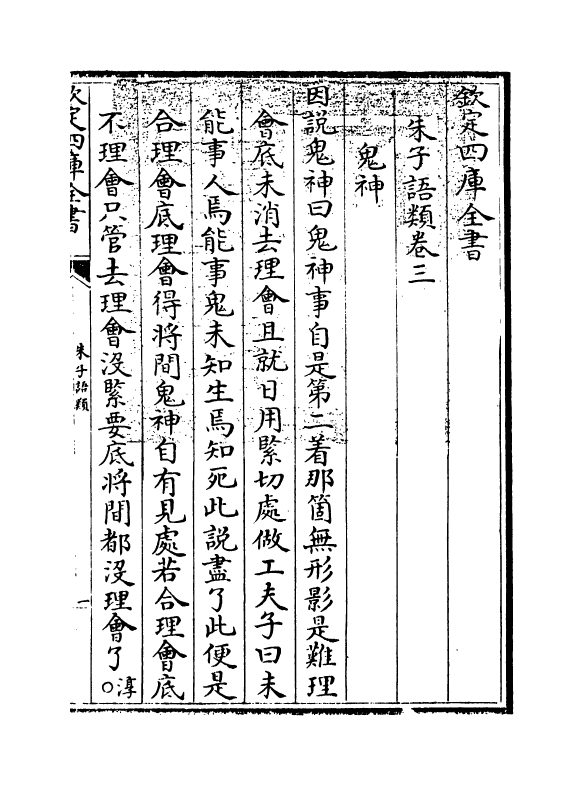 欽定四庫全書
朱子語類卷三
鬼神
因説鬼神曰鬼神事自是第二着那箇無形影是難理
會底未消去理會且就日用緊切處做工夫子曰未
能事人焉能事鬼未知生焉知死此説盡了此便是
合理會底理會得將間鬼神自有見處若合理會底
不理會只管去理會沒緊要底將間都沒理會了○淳
欽定四庫全書
朱子語類
一